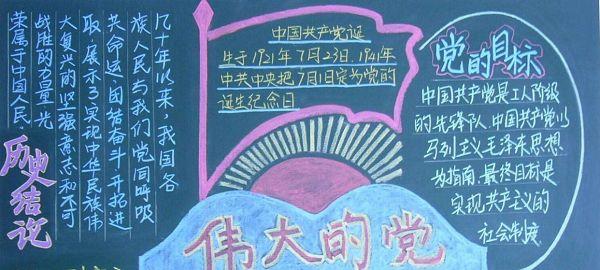 几十年以来,我国各
族人民与我们党同呼吸
共命运,团结奋斗,开拓进
取,展示了实现中华民族伟
大复兴的坚强意志和不可
战胜的力量,光
荣属于中国人民
历史结论
中国共产党诞
生于1921年7月23日.1941年
中共中央把7月1日定为党的
诞生纪念日
伟大的党
党的目标
中国共产党是工人阶级
的先锋队.中国共产党以
马列主义.毛泽东思想
为指南,最终目标是
实现共产主义的
社会制度